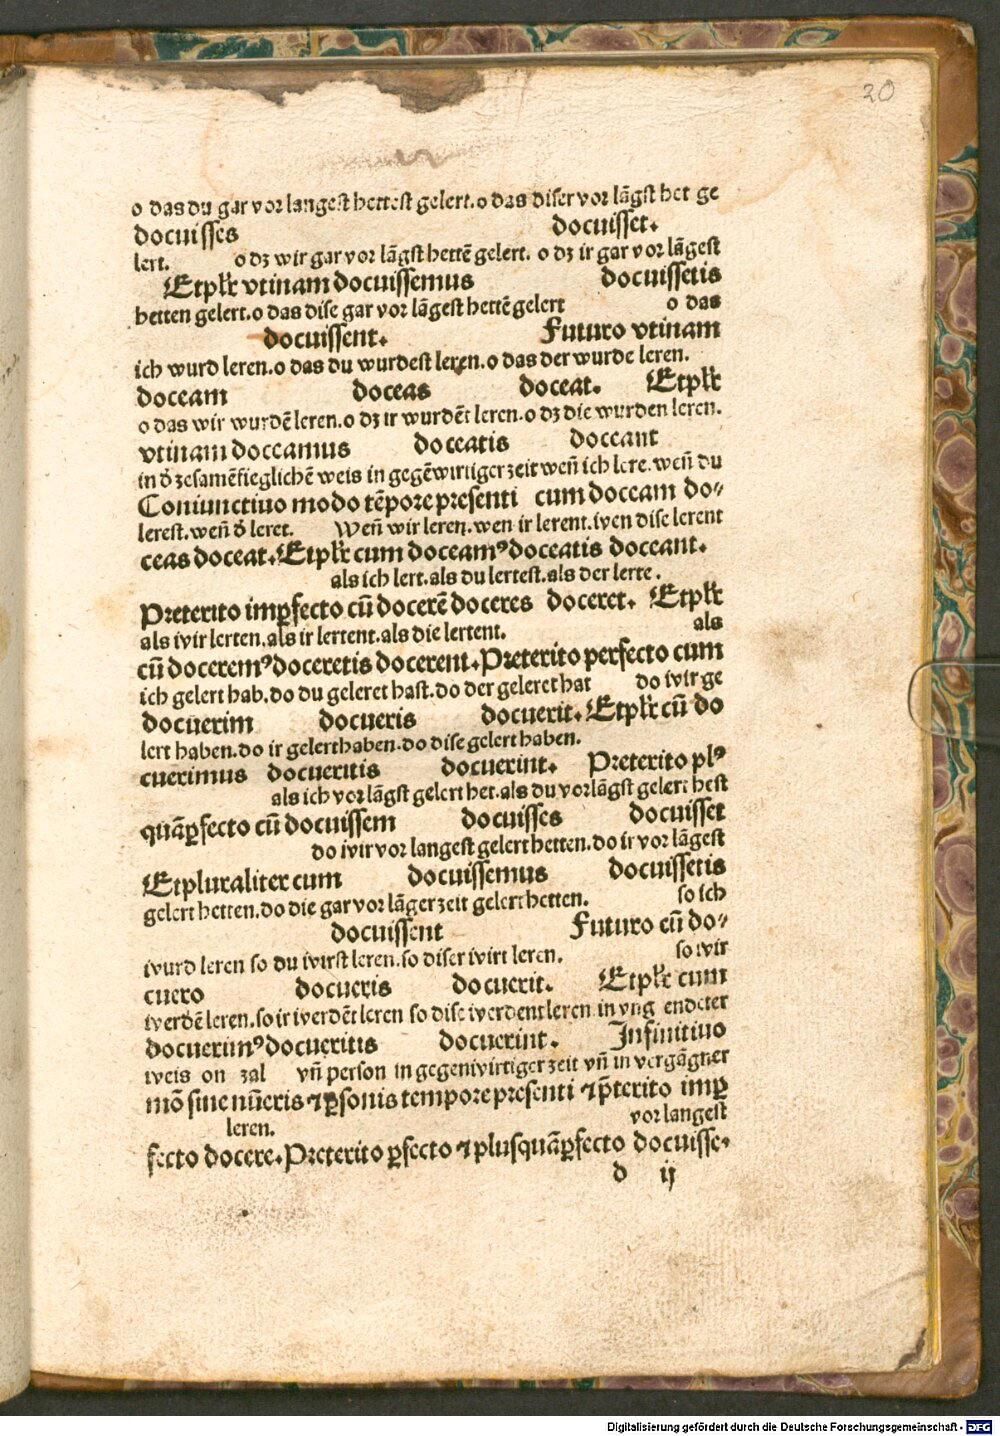 20
o das du gar vor langest hettest gelert. o das diser vor lãgst het ge
docuisses docuisset.
lert. o dz wir gar vor lãgst hettẽ gelert. o dz ir gar vor lãgest
Etplr̃ vtinam docuissemus docuissetis
hetten gelert. o das dise gar vor lãgest hettẽ gelert o das
docuissent. Futuro vtinam
ich wurd leren. o das du wurdest leren. o das der wurde leren.
doceam doceas doceat. Etplr̃
o das wir wurdẽ leren. o dz ir wurdẽt leren. o dz die wurden leren.
vtinam doceamus doceatis doceant
in d̕ zesamẽfieglichẽ weis in gegẽwirtiger zeit weñ ich lere. weñ du
Coniunctiuo modo tẽpore presenti cum doceam do⸗
lerest. weñ d̕ leret. Weñ wir leren. wen ir lerent. wen dise lerent
ceas doceat. Etplr̃ cum doceamꝰ doceatis doceant.
als ich lert. als du lertest. als der lerte.
Preterito imꝑfecto cũ docerẽ doceres doceret. Etplr̃
als wir lerten. als ir lertent. als die lertent. als
cũ doceremꝰ doceretis docerent. Preterito perfecto cum
ich gelert hab. do du geleret hast. do der geleret hat do wir ge
docuerim docueris docuerit. Etplr̃ cũ do
lert haben. do ir gelert haben. do dise gelert haben.
cuerimus docueritis docuerint. Preterito plꝰ
als ich vor lãgst gelert het. als du vor lãgst gelert hest
quãꝑfecto cũ docuissem docuisses docuisset
do wir vor langest gelert hetten. do ir vor lãgest
Etpluraliter cum docuissemus docuissetis
gelert hetten. do die gar vor lãger zeit gelert hetten. so ich
docuissent Futuro cũ do⸗
wurd leren so du wirst leren. so diser wirt leren. so wir
cuero docueris docuerit. Etplr̃ cum
werdẽ leren. so ir werdẽt leren so dise werdent leren in vng endeter
docuerimꝰ docueritis docuerint. Infinitiuo
weis on zal vñ person in gegenwirtiger zeit vñ in vergãgner
mõ sine nũeris ⁊ ꝑsonis tempore presenti ⁊ p̃terito imꝑ
leren. vor langest
fecto docere. Preterito ꝑfecto ⁊ plusquãꝑfecto docuisse.
d ij
Digitalisierung gefördert durch die Deutsche Forschungsgemeinschaft - DFG